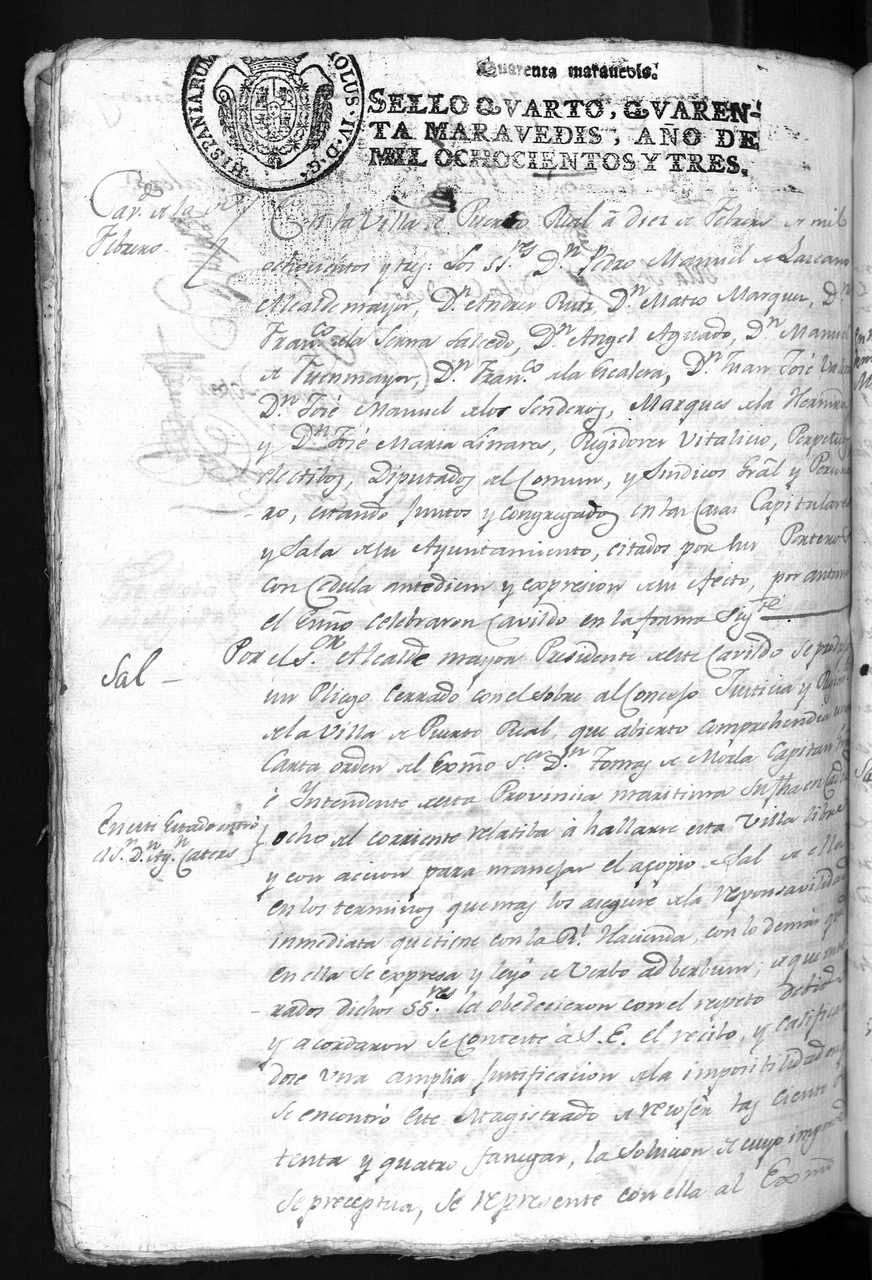 HISPANIARUM
CAROLUS·IV·D·G·
Quarenta maravedis.
SELLO QVARTO, QVAREN-
TA MARAVEDIS, AÑO DE
MIL OCHOCIENTOS Y TRES.
Cav.do de 10 de
Febrero
En la Villa de Puerto Real à diez de Febrero de mil
ochocientos y tres: Los SS.res D.n Pedro Manuel de Lazcano
Alcalde mayor, D.n Andres Ruiz, D.n Mateo Marquez, D.n
Fran.co de la Serna Salcedo, D.n Angel Aguado, D.n Manuel
de Fuenmayor, D.n Fran.co de la Escalera, D.n Juan José
D.n José Manuel de los Senderos, Marques de la Hermida
y D.n José Maria Linares, Regidores Vitalicio, Perpetuos
electibos, Diputados del Comun, y Sindicos Gral y Persone
ro, estando juntos y congregados en las Casas Capitulares
y Sala de su Ayuntamiento, citados por sus Porteros
con Cedula antediem y expresion de su efecto, por ante mi
el Esñno celebraron Cavildo en la forma sig.te
Sal
Por el S.or Alcalde mayor Presidente de este Cavildo se
un Pliego cerrado con el sobre al Concejo Justicia y
de la Villa de Puerto Real, que abierto comprehendia una
Carta orden del Exmo S.or D.n Tomas de Morla Capitan
é Intendente de esta Provincia maritima su fha en Cadiz
En este Estado entró
el S.r D.n Ag.n
ocho del corriente relatiba à hallarse esta Villa libre
y con accion para manejar el acopio de Sal de ella
en los terminos que mas los asegure de la responsavilidad
inmediata que tiene con la R.l Hacienda, con lo demás que
en ella se expresa y leyó de Verbo adberbum; de que
rados dichos SS.res la obedecieron con el respeto debido
y acordaron se conteste à S.E. el recibo, y
dose una amplia justificacion de la imposibilidad en
se encontró este Magistrado de recojer las ciento
tenta y quatro fanegas, la solucion de cuyo importe
se preceptua, se represente con ella al Exmo